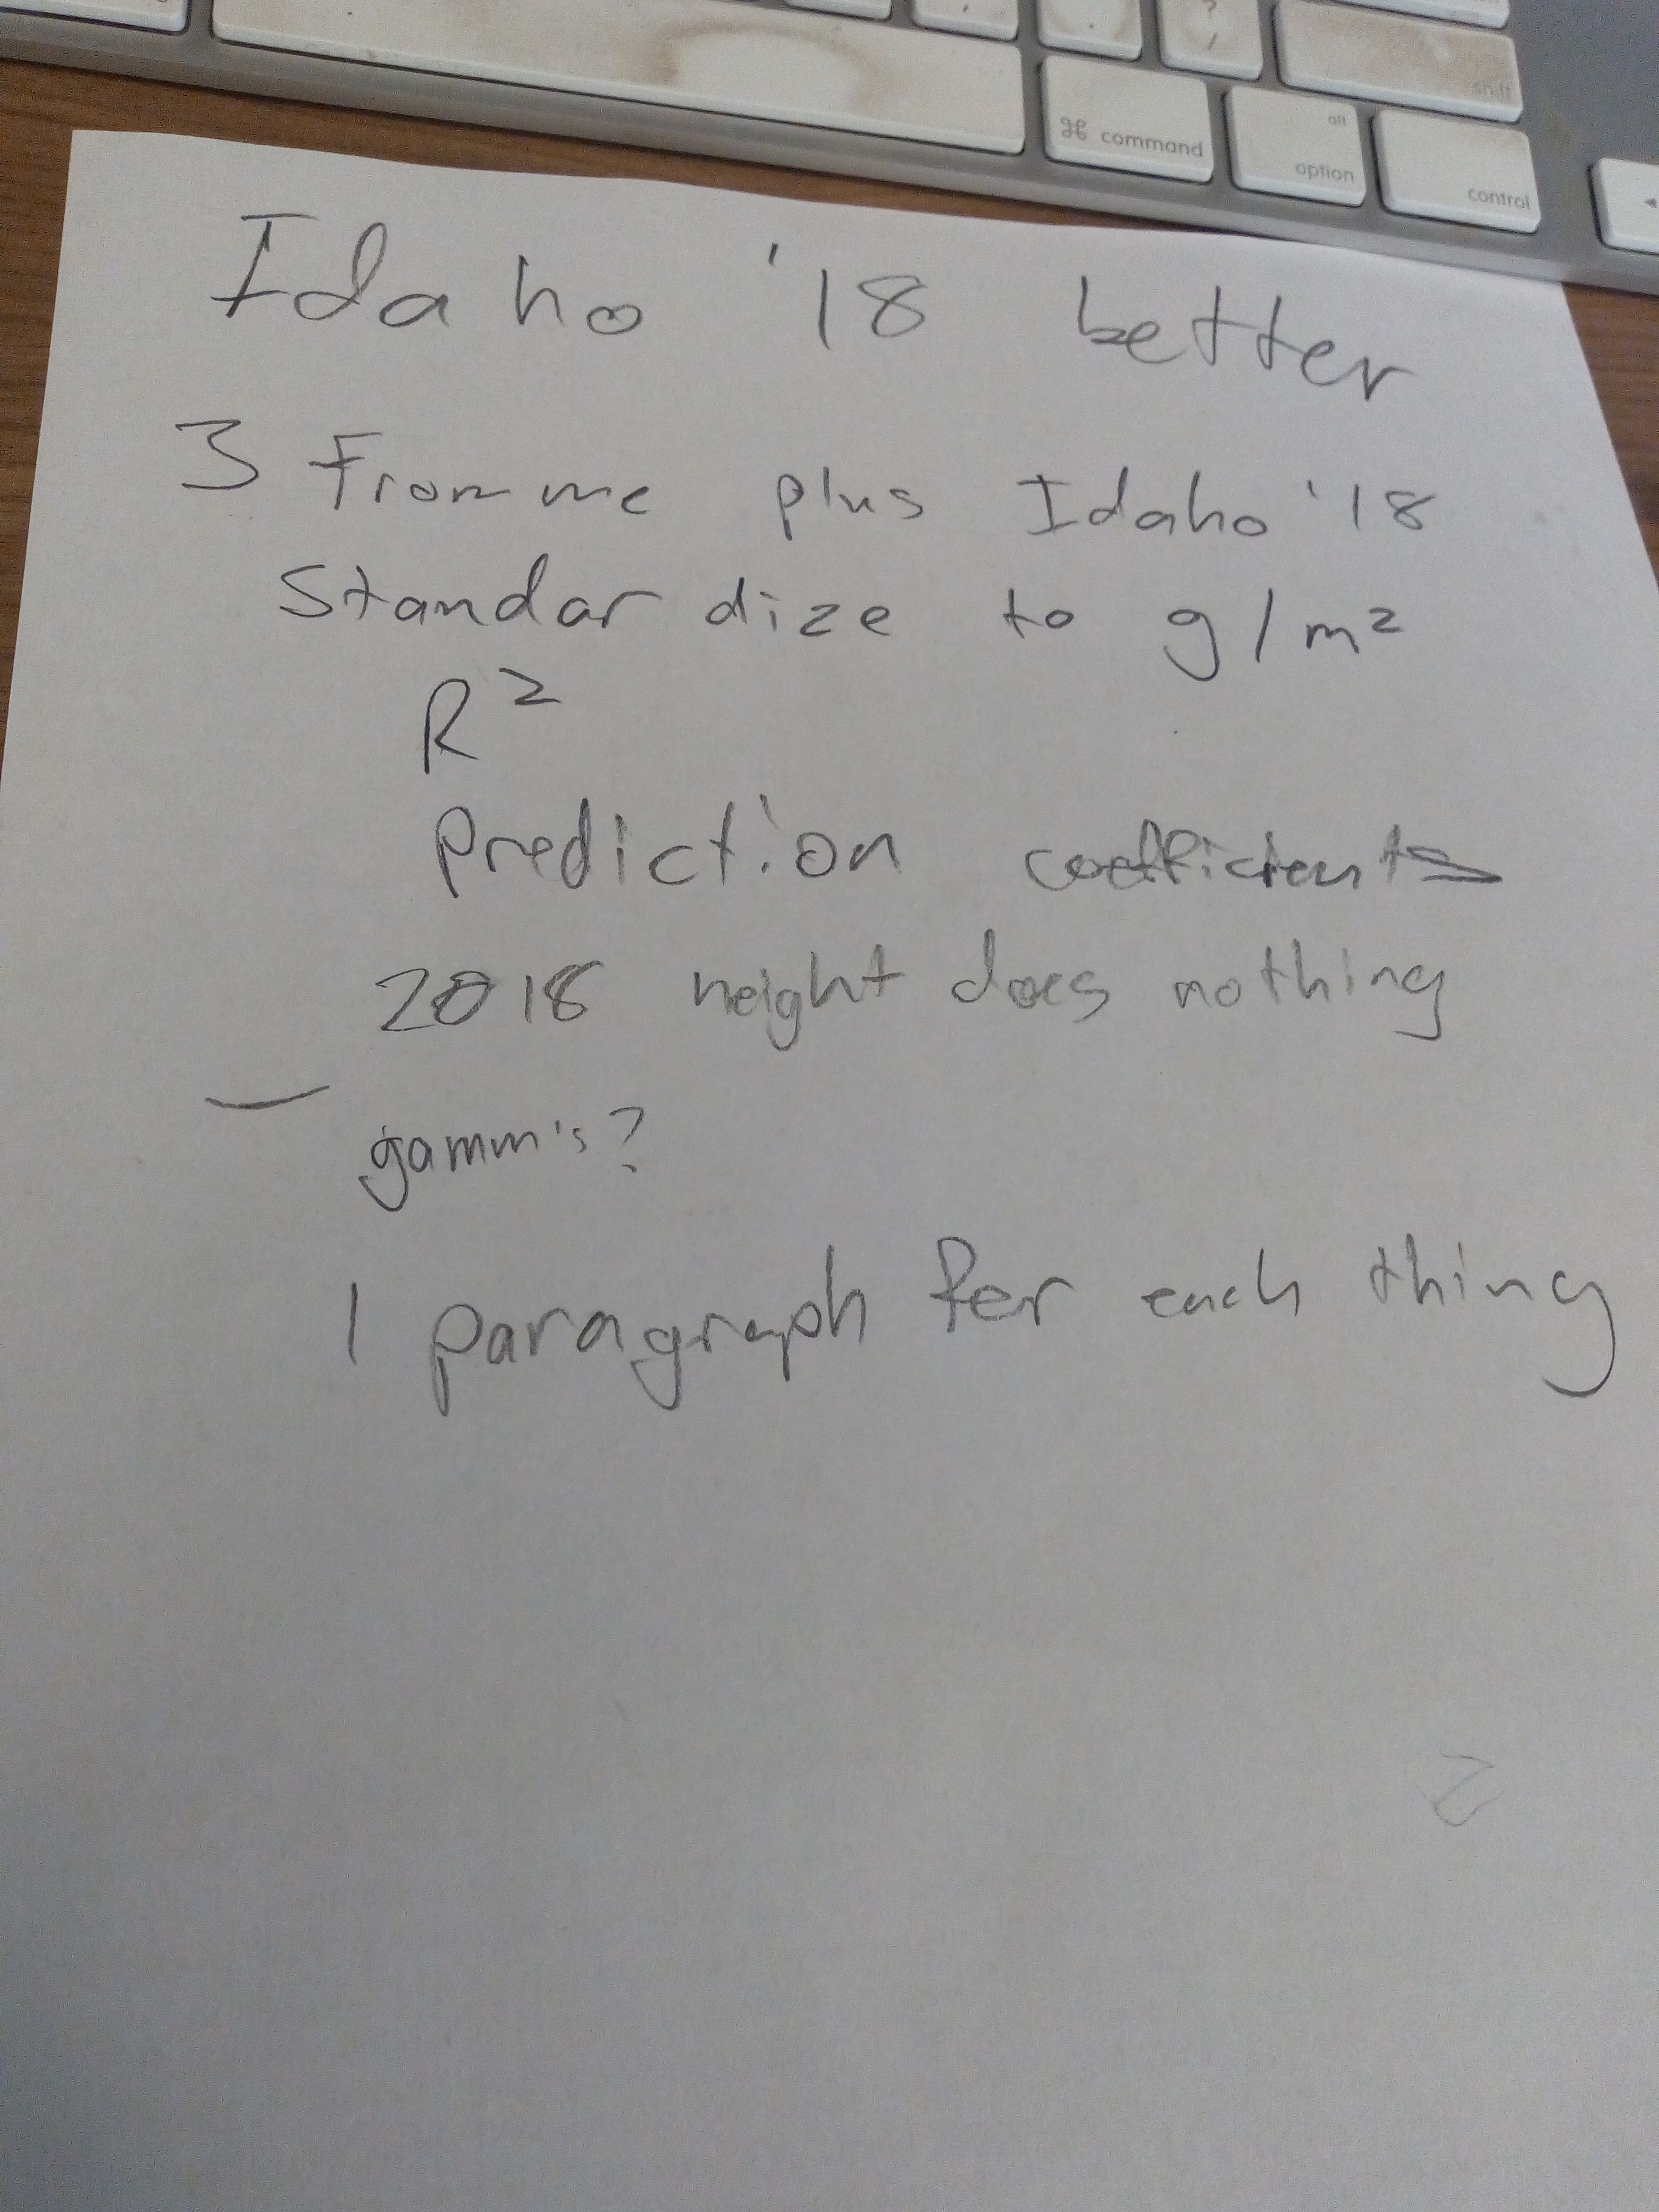 , . ? /
shift
⌘ command alt option control ◄
Idaho '18 better
3 From me plus Idaho '18
Standardize to g/m²
R²
Prediction coefficients
2018 height does nothing
— gamm's?
1 paragraph for each thing